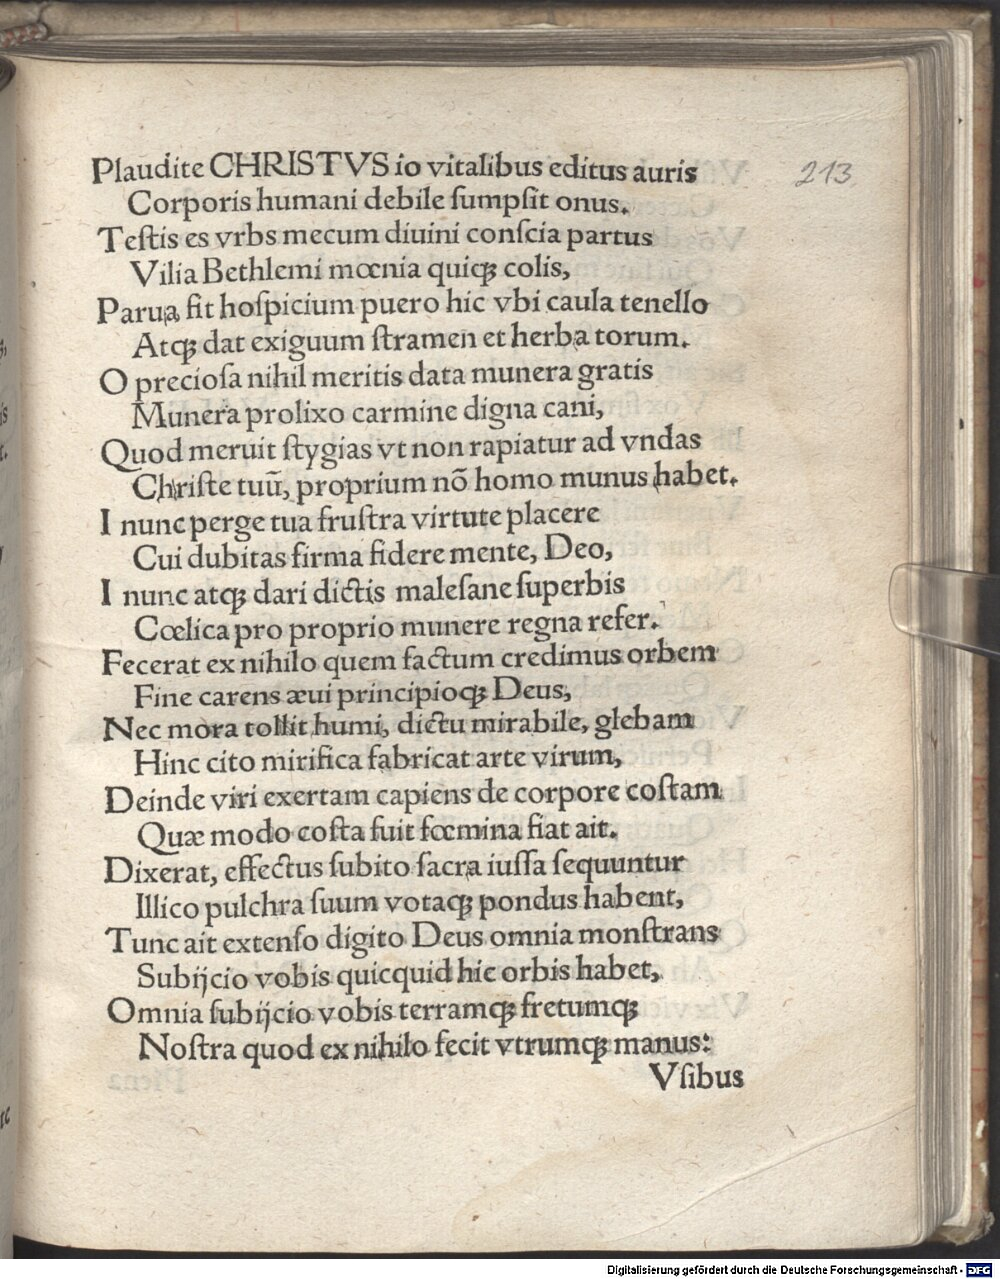 Plaudite CHRISTVS io vitalibus editus auris
213
Corporis humani debile ſumpſit onus.
Teſtis es vrbs mecum diuini conſcia partus
Vilia Bethlemi mœnia quiqꝫ colis,
Parua ſit hoſpicium puero hic vbi caula tenello
Atqꝫ dat exiguum ſtramen et herba torum.
O precioſa nihil meritis data munera gratis
Munera prolixo carmine digna cani,
Quod meruit ſtygias vt non rapiatur ad vndas
Chriſte tuū, proprium nō homo munus habet.
I nunc perge tua fruſtra virtute placere
Cui dubitas firma fidere mente, Deo,
I nunc atqꝫ dari dictis maleſane ſuperbis
Cœlica pro proprio munere regna refer.
Fecerat ex nihilo quem factum credimus orbem
Fine carens æui principioqꝫ Deus,
Nec mora tollit humi, dictu mirabile, glebam
Hinc cito mirifica fabricat arte virum,
Deinde viri exertam capiens de corpore coſtam
Quæ modo coſta fuit fœmina fiat ait.
Dixerat, effectus ſubito ſacra iuſſa ſequuntur
Illico pulchra ſuum votaqꝫ pondus habent,
Tunc ait extenſo digito Deus omnia monſtrans
Subijcio vobis quicquid hic orbis habet,
Omnia ſubijcio vobis terramqꝫ fretumqꝫ
Noſtra quod ex nihilo fecit vtrumqꝫ manus:
Vſibus
Digitalisierung gefördert durch die Deutsche Forschungsgemeinschaft - DFG